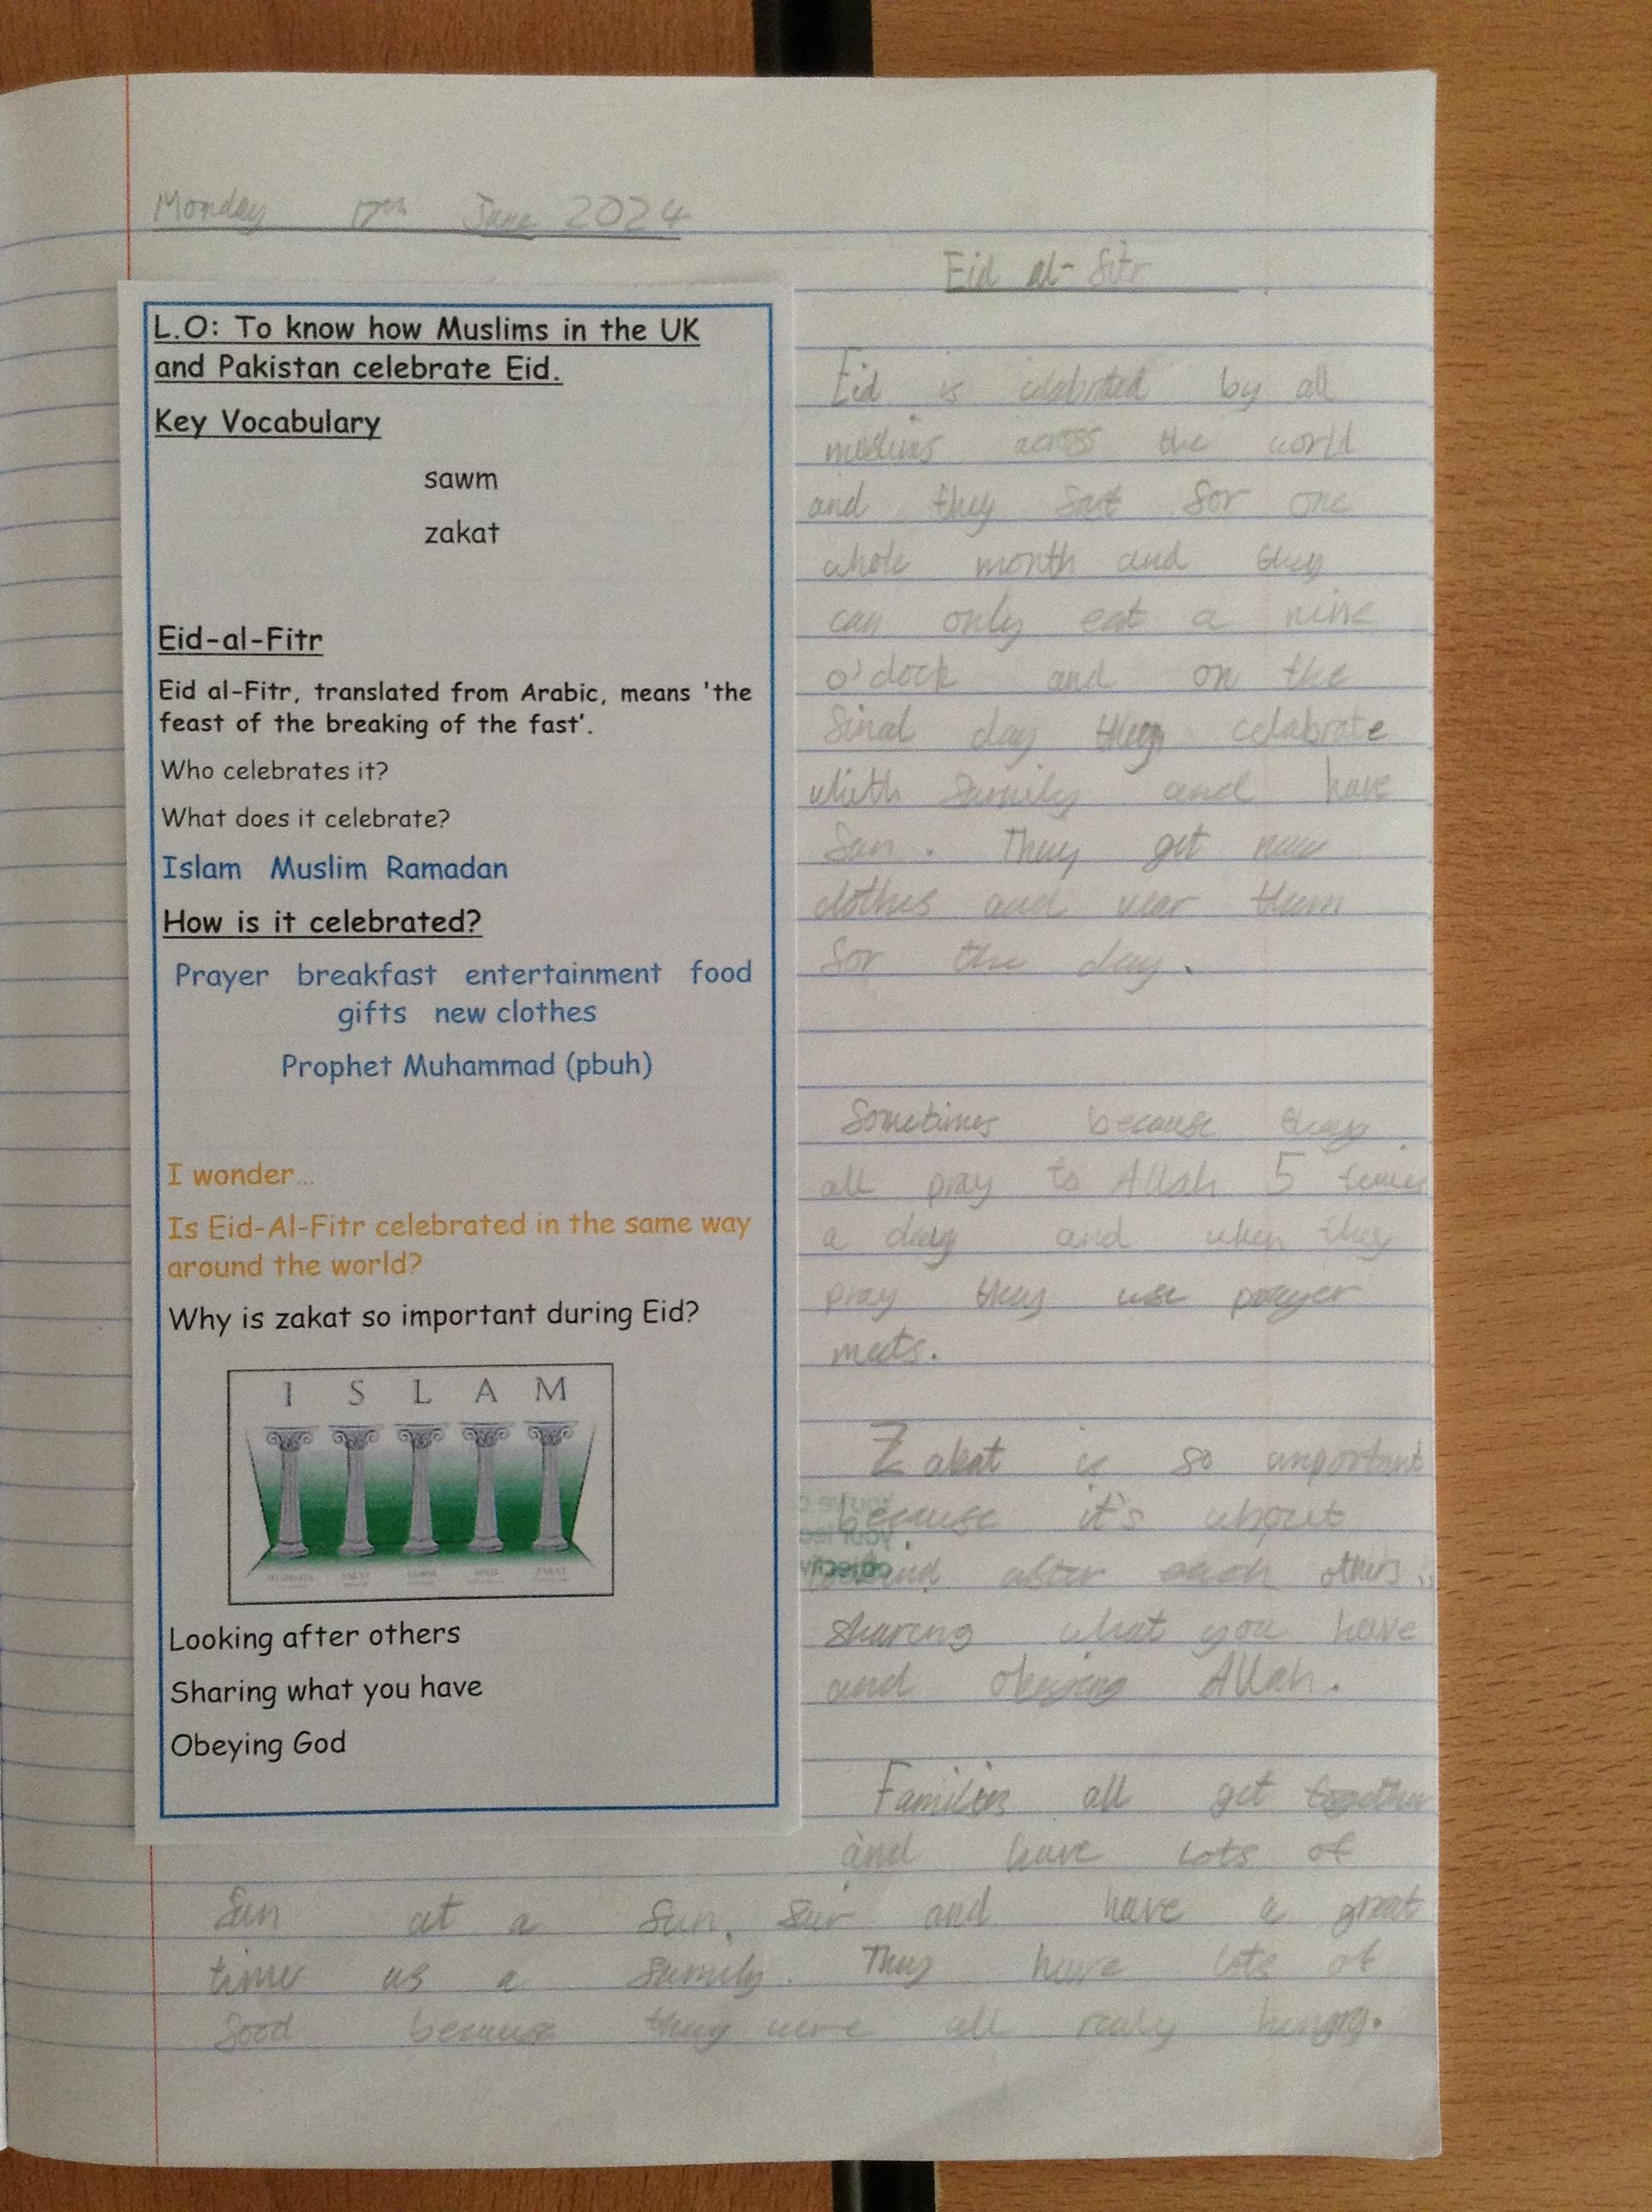 Monday 17th June 2024
L.O: To know how Muslims in the UK
and Pakistan celebrate Eid.
Key Vocabulary
sawm
zakat
Eid-al-Fitr
Eid al-Fitr, translated from Arabic, means 'the
feast of the breaking of the fast'.
Who celebrates it?
What does it celebrate?
Islam Muslim Ramadan
How is it celebrated?
Prayer breakfast entertainment food
gifts new clothes
Prophet Muhammad (pbuh)
I wonder...
Is Eid-Al-Fitr celebrated in the same way
around the world?
Why is zakat so important during Eid?
I S L A M
Looking after others
Sharing what you have
Obeying God
Eid al-fitr
Eid is celebrated by all
muslims across the world
and they fast for one
whole month and they
can only eat a nine
o'clock and on the
final day they celabrate
whith family and have
fun. They get new
clothes and wear them
for the day.
Sometimes because they
all pray to Allah 5 times
a day and when they
pray they use prayer
mats.
Zakat is so important
because it's about
after each others
sharing what you have
and obeying Allah.
Families all get together
and have lots of
fun at a fun fair and have a great
time as a family. They have lots of
food because they were all realy hungry.